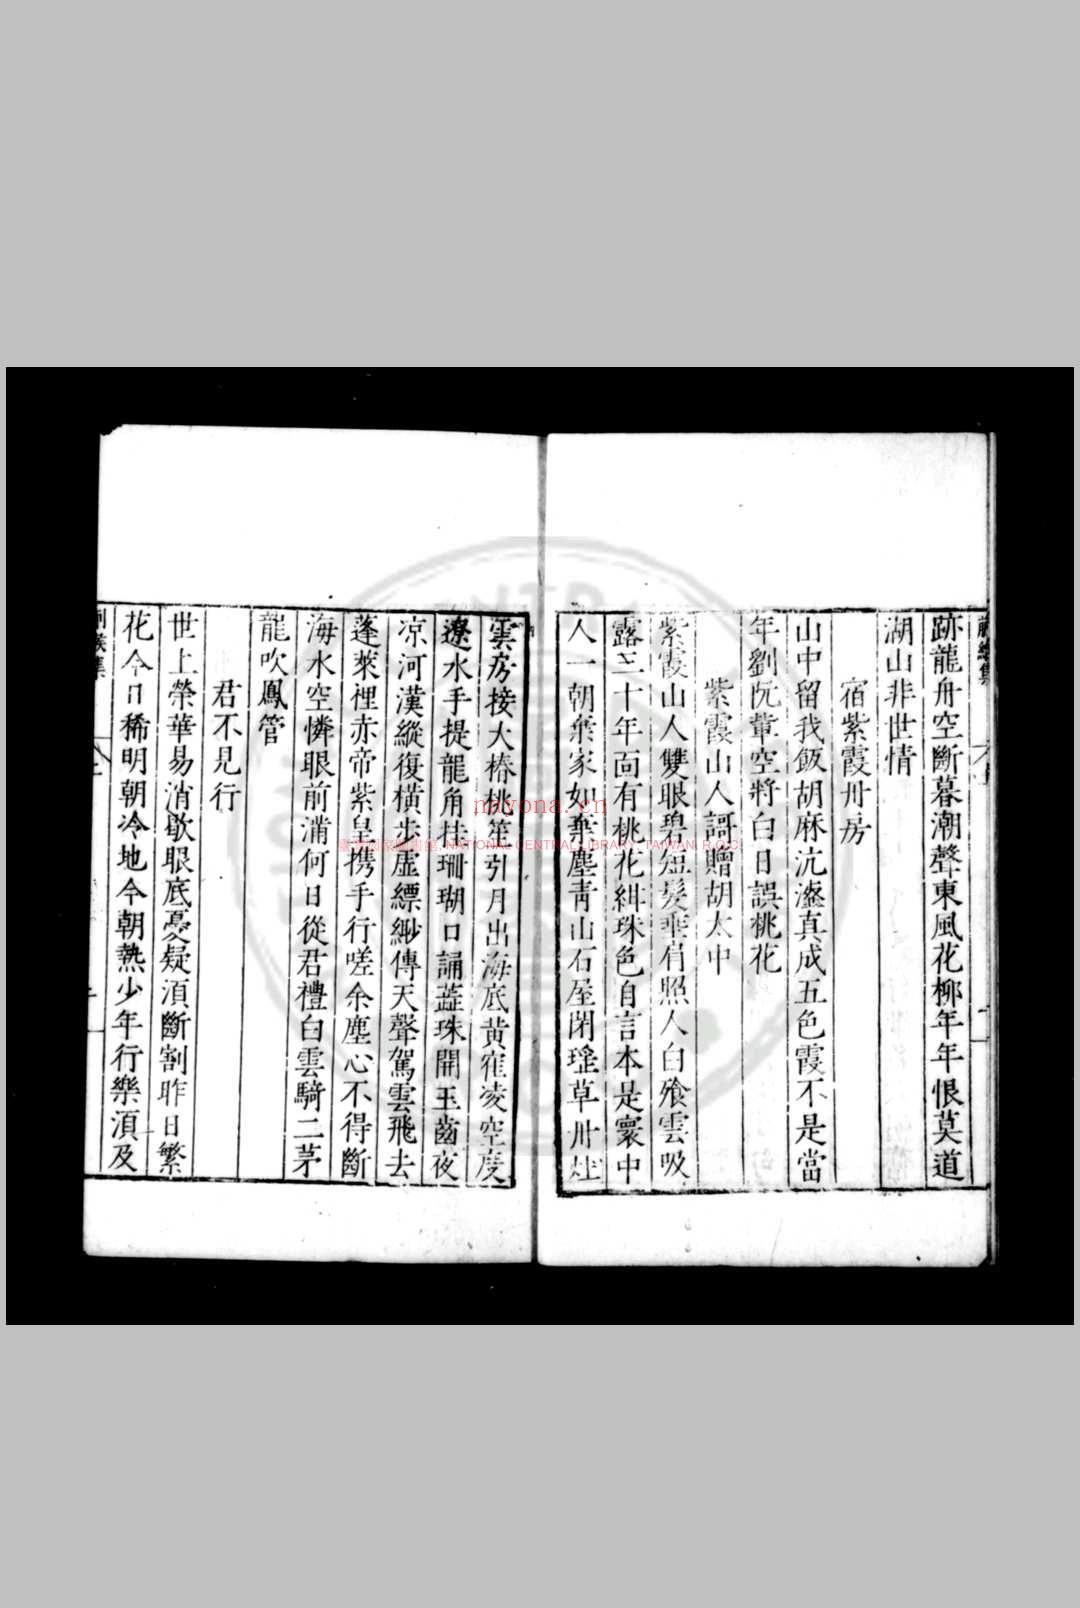 跡龍舟空斷暮潮聲東風花柳年年恨莫道
湖山非世情
宿紫霞丹房
山中留我飯胡麻沆瀣真成五色霞不是當
年劉阮軰空將白日誤桃花
紫霞山人謌贈胡太中
紫霞山人雙眼碧短髮垂肩照人白飱雲吸
露三十年面有桃花緋珠色自言本是寰中
人一朝棄家如棄塵青山石屋閉瑤草丹灶
雲房接大椿桃笙引月出海底黃寉凌空度
遼水手提龍角拄珊瑚口誦蕋珠開玉齒夜
凉河漢縱復橫步虛縹緲傳天聲駕雲飛去
蓬萊裡赤帝紫皇携手行嗟余塵心不得斷
海水空憐眼前滿何日從君禮白雲騎二茅
龍吹鳳管
君不見行
世上榮華易消歇眼底憂疑湏斷割昨日繁
花今日稀明朝冷地今朝熱少年行樂湏及
nayona.cn
臺灣國家圖書館, NATIONAL CENTRAL LIBRARY, TAIWAN, R.O.C